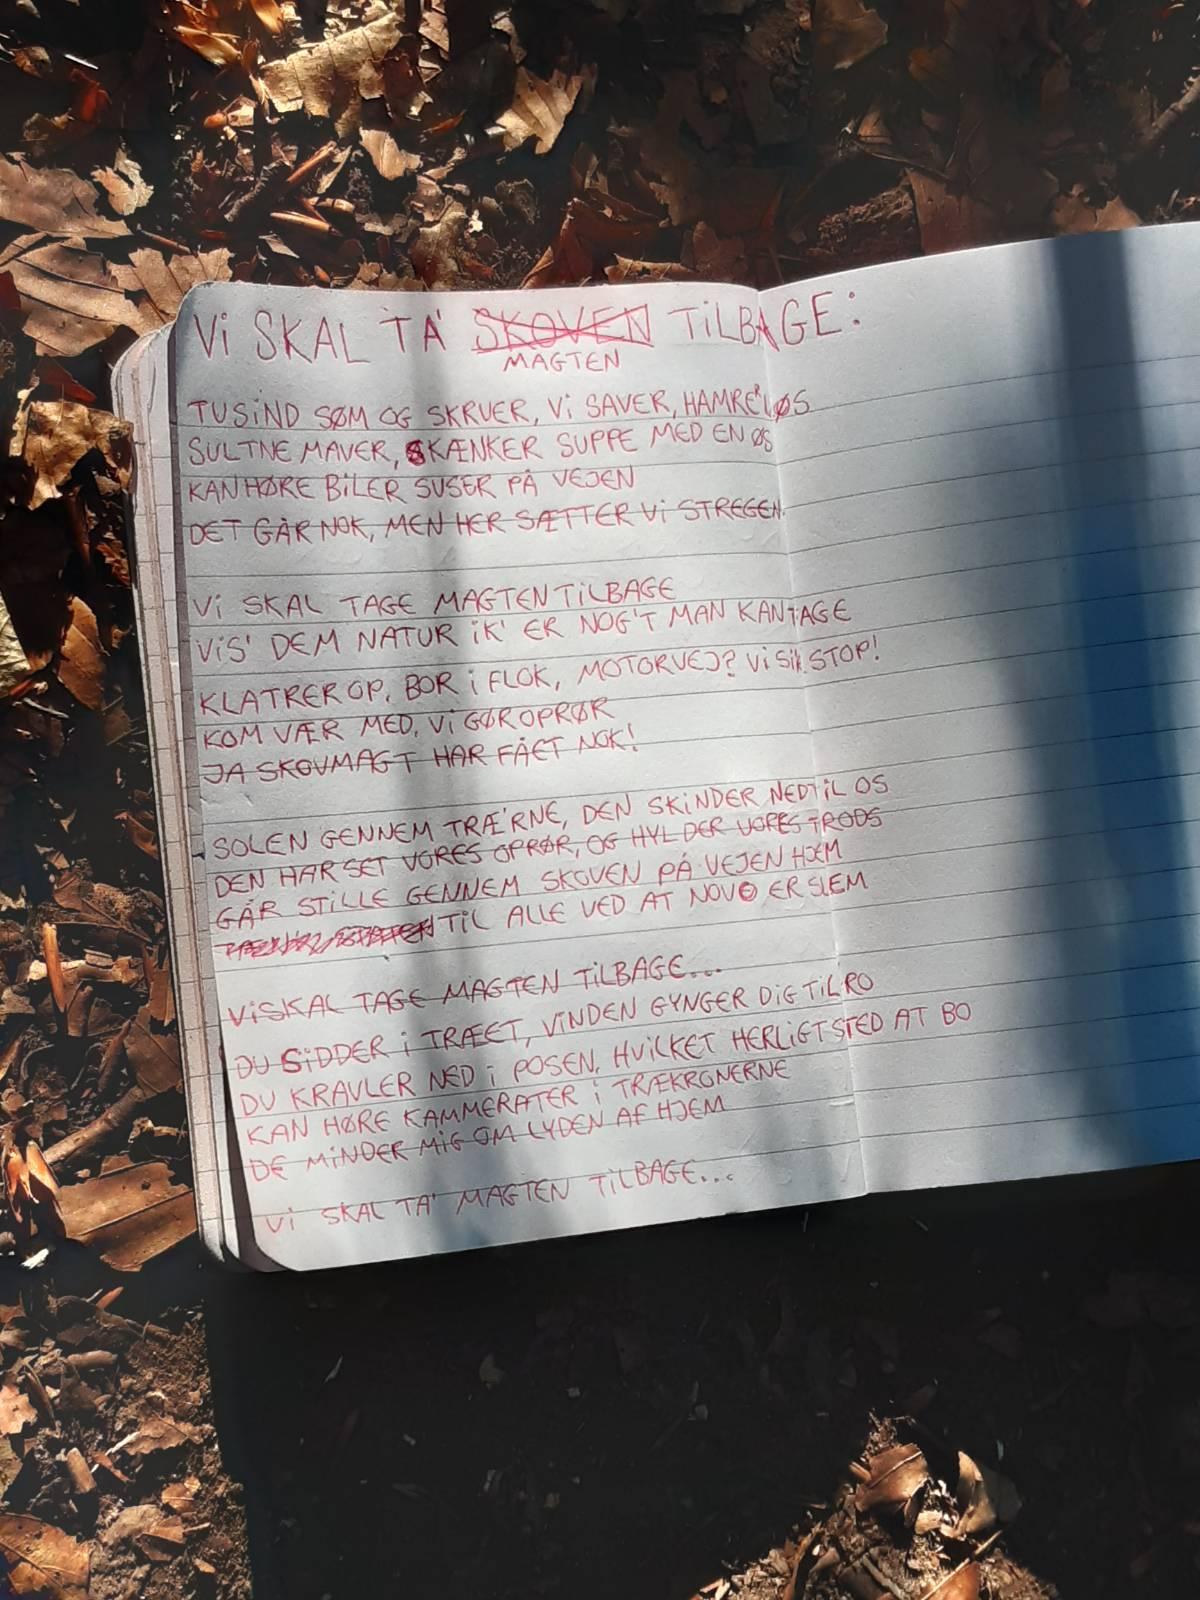 Vi SKAL TA' SKOVEN TiLBAGE:
MAGTEN
TUSiND SØM OG SKRUER, Vi SAVER, HAMRER LØS
SULTNE MAVER, SKÆNKER SUPPE MED EN ØS
KAN HØRE BiLER SUSER PÅ VEJEN
DET GÅR NOK, MEN HER SÆTTER Vi STREGEN.
Vi SKAL TAGE MAGTEN TiLBAGE
ViS' DEM NATUR iK' ER NOG'T MAN KAN TAGE
KLATRER OP, BOR i FLOK, MOTORVEJ? Vi Si'r STOP!
KOM VÆR MED, Vi GØR OPRØR
JA SKOVMAGT HAR FÅET NOK!
SOLEN GENNEM TRÆ'RNE, DEN SKiNDER NED TiL OS
DEN HAR SET VORES OPRØR, OG HYLDER VORES TRODS
GÅR STILLE GENNEM SKOVEN PÅ VEJEN HJEM
TiL ALLE VED AT NOVO ER SLEM
Vi SKAL TAGE MAGTEN TiLBAGE...
DU SiDDER i TRÆET, ViNDEN GYNGER DiG TiL RO
DU KRAVLER NED i POSEN, HVILKET HERLiGT STED AT BO
KAN HØRE KAMMERATER i TRÆKRONERNE
DE MiNDER MiG OM LYDEN AF HJEM
Vi SKAL TA' MAGTEN TiLBAGE...